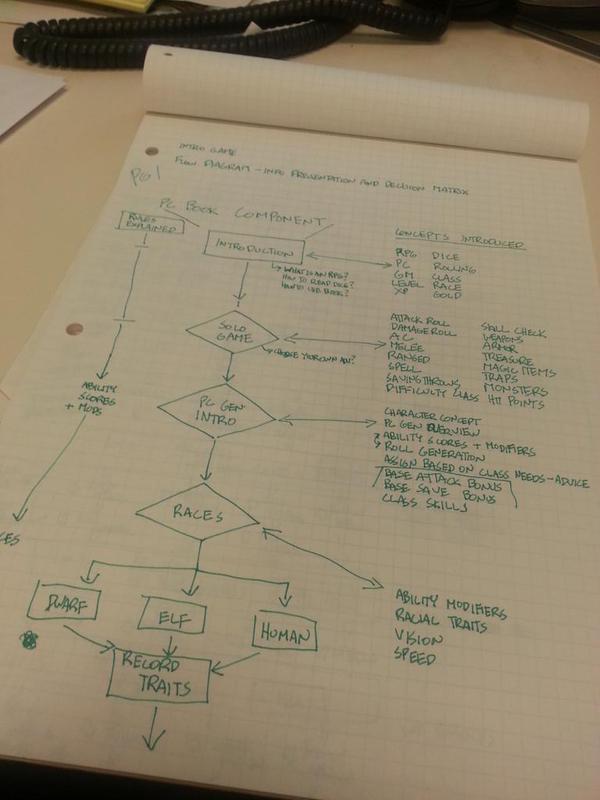 INTRO GAME
FLOW DIAGRAM - INFO PRESENTATION AND DECISION MATRIX
PG 1
PC BOOK COMPONENT
RULES
EXPLAINED
INTRODUCTION
WHAT IS AN RPG?
HOW TO READ DICE?
HOW TO USE BOOK?
CONCEPTS INTRODUCED
RPG DICE
PC ROLLING
GM CLASS
LEVEL RACE
XP GOLD
SOLO
GAME
CHOOSE YOUR OWN ADV?
ATTACK ROLL SKILL CHECK
DAMAGE ROLL WEAPONS
AC ARMOR
MELEE TREASURE
RANGED MAGIC ITEMS
SPELL TRAPS
SAVING THROWS MONSTERS
DIFFICULTY CLASS HIT POINTS
ABILITY
SCORES
+ MODS
PC GEN
INTRO
CHARACTER CONCEPT
PC GEN OVERVIEW
ABILITY SCORES + MODIFIERS
ROLL GENERATION
ASSIGN BASED ON CLASS NEEDS - ADVICE
BASE ATTACK BONUS
BASE SAVE BONUS
CLASS SKILLS
RACES
CES
DWARF
ELF
HUMAN
ABILITY MODIFIERS
RACIAL TRAITS
VISION
SPEED
RECORD
TRAITS